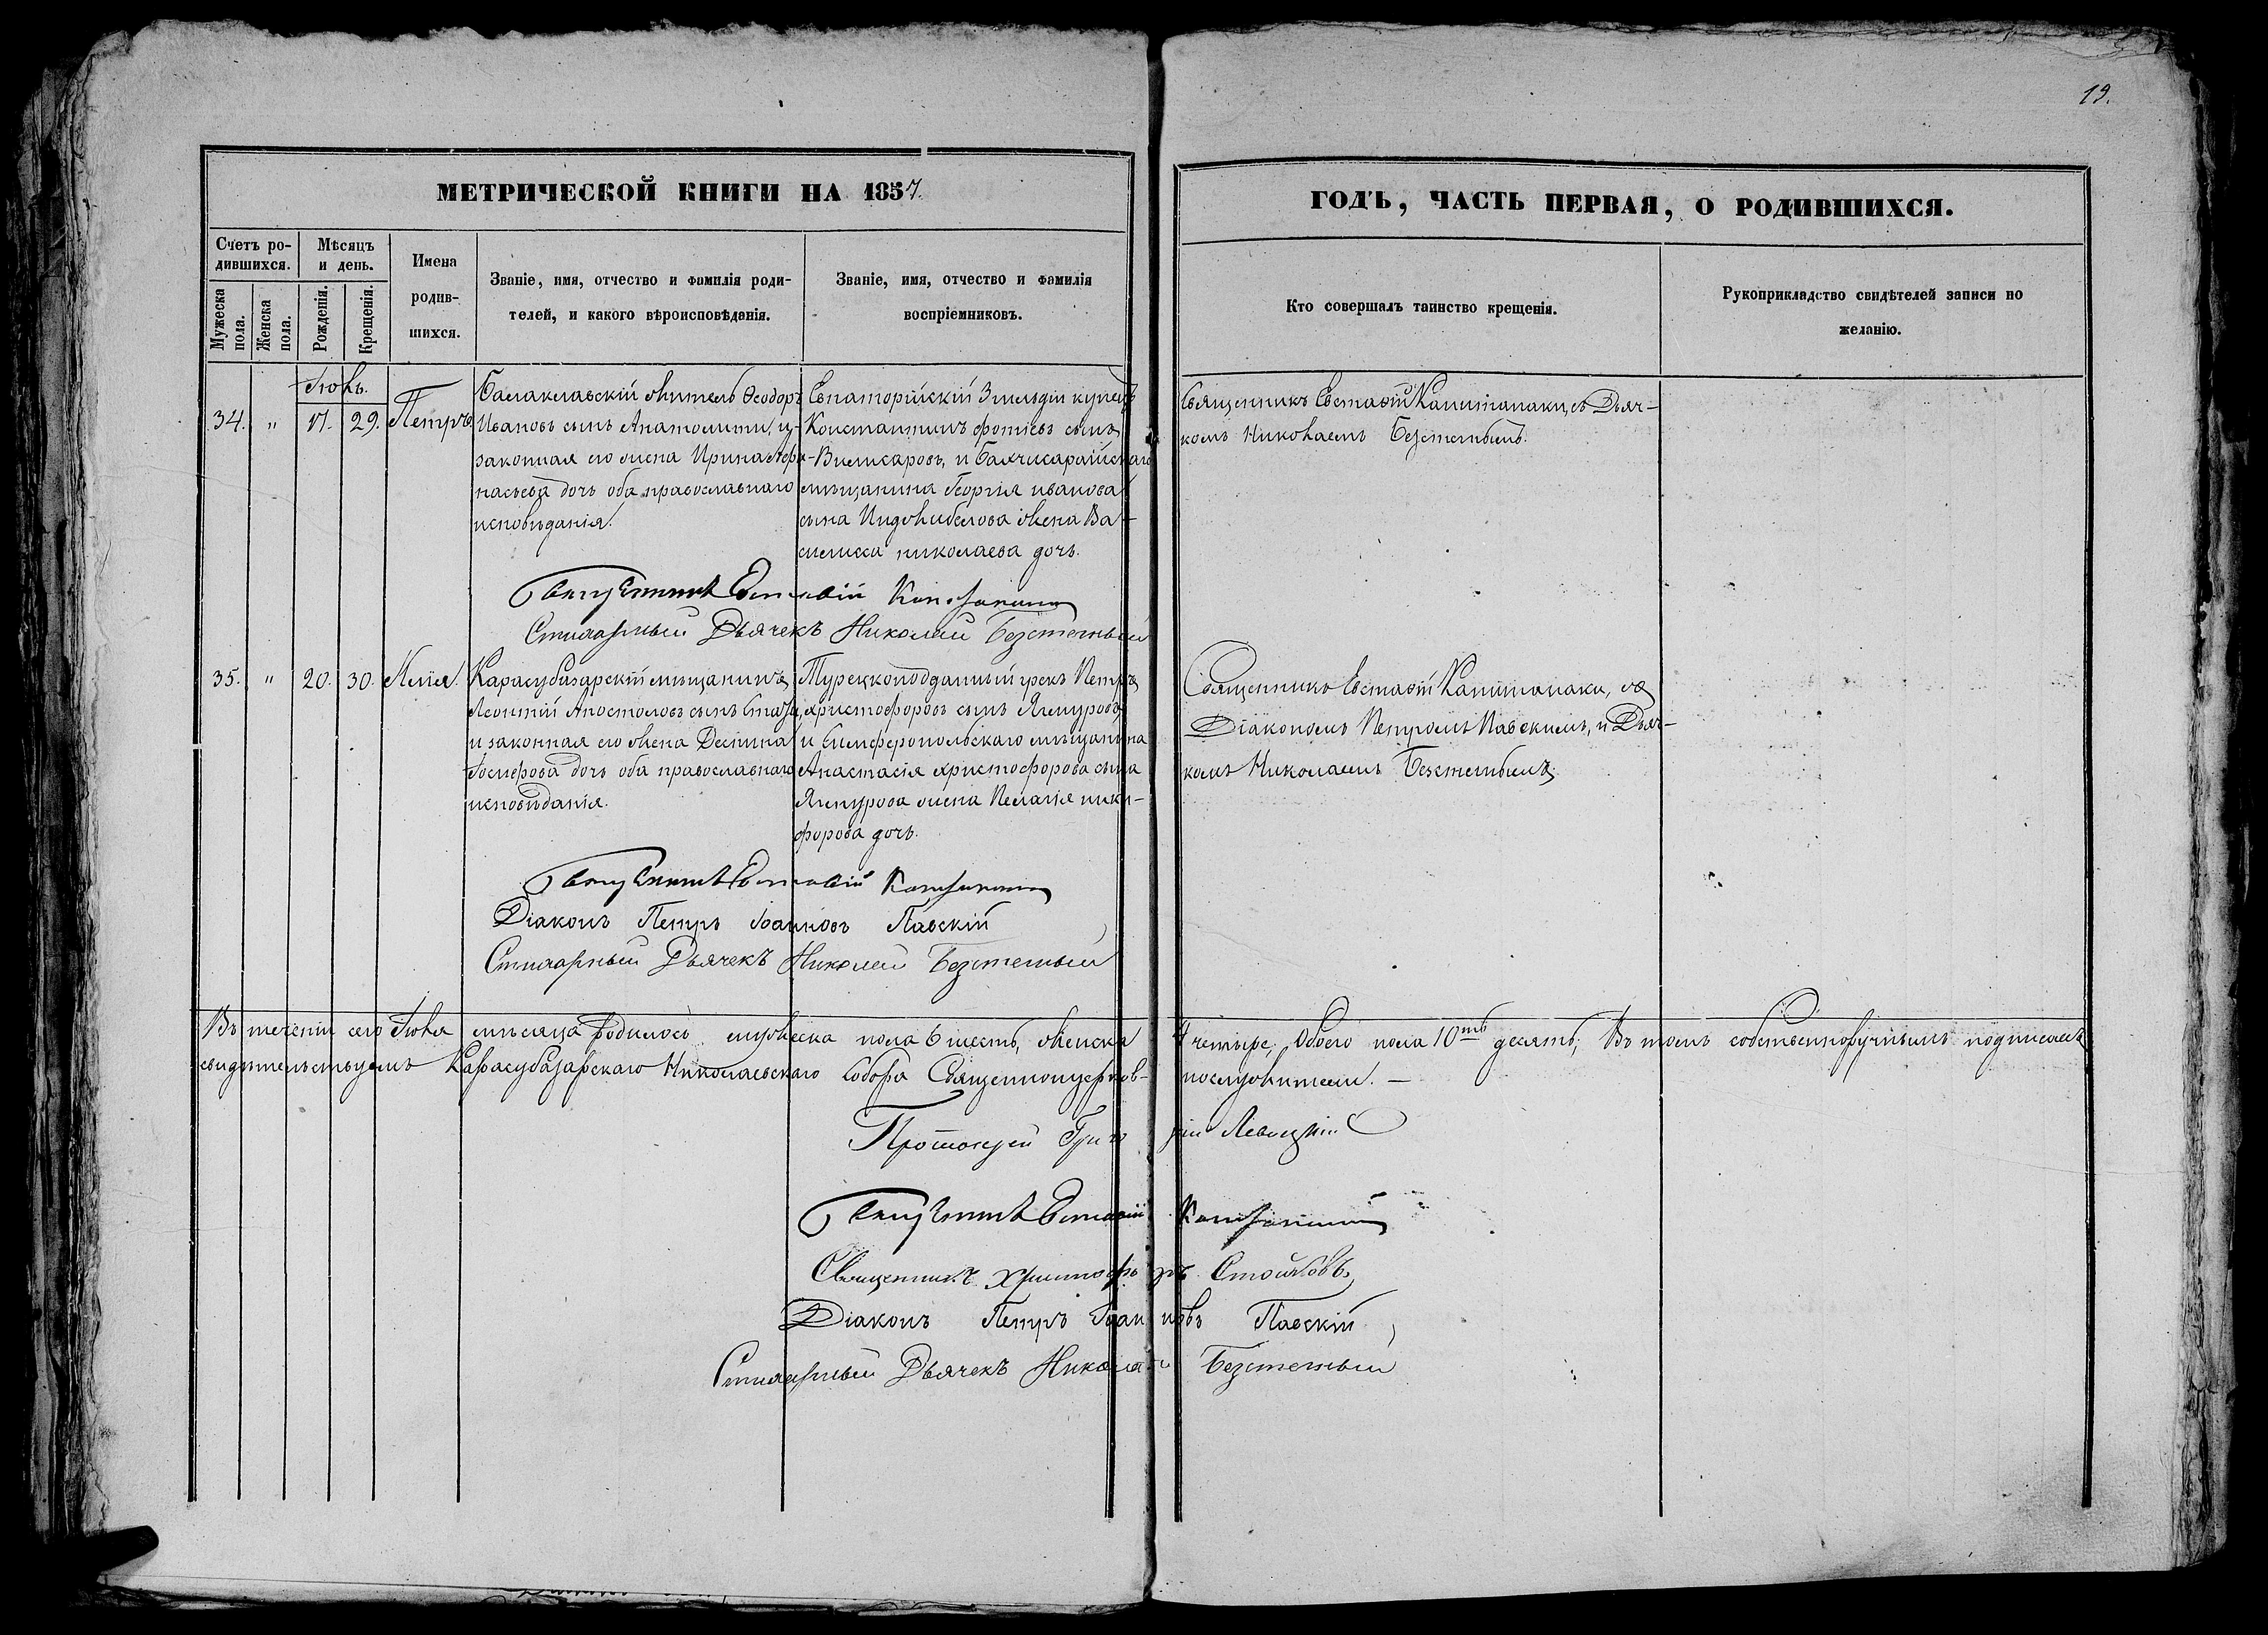 19.
МЕТРИЧЕСКОЙ КНИГИ НА 1857.
ГОДЪ, ЧАСТЬ ПЕРВАЯ, О РОДИВШИХСЯ.
Счетъ ро-
дившихся.
Мѣсяцъ
и день.
Имена
родив-
шихся.
Мужеска
пола.
Женска
пола.
Рожденія.
Крещенія.
Званіе, имя, отчество и фамилія роди-
телей, и какого вѣроисповѣданія.
Званіе, имя, отчество и фамилія
воспріемниковъ.
Кто совершалъ таинство крещенія.
Рукоприкладство свидѣтелей записи по
желанію.
Іюнь.
34. " 17. 29. Петръ.
Балаклавскій житель Ѳеодоръ
Ивановъ сынъ и
законная его жена Ирина
дочь оба православнаго
исповѣданія.
Евпаторійскій купецъ
Константинъ Фотіевъ сынъ
и Бахчисарайскаго
мѣщанина Георгія иванова
сына жена Ва-
силиса николаева дочь.
Священникъ Евстафій Капитанаки, съ Дьяч-
комъ Николаемъ
Священникъ Евстафій
Стихарный Дьячекъ Николай
35. " 20. 30. Илія.
Карасубазарскій мѣщанинъ
Леонтій Апостоловъ сынъ
и законная его жена Деспина
дочь оба православнаго
исповѣданія.
Турецкоподданный грекъ Петръ
христофоровъ сынъ
и Симферопольскаго мѣщанина
Анастасія христофорова сына
жена Пелагія ники-
форова дочь.
Священникъ Евстафій Капитанаки, съ
Діакономъ Петромъ Павскимъ, и Дьяч-
комъ Николаемъ
Священникъ Евстафій
Діаконъ Петръ Іоанновъ Павскій
Стихарный Дьячекъ Николай
Въ теченіи сего Іюня мѣсяца родилось мужеска пола 6 шесть, женска 4 четыре, Обоего пола 10ть десять; Въ томъ собственноручнымъ подписомъ
свидѣтельствуемъ Карасубазарскаго Николаевскаго Собора Священноцерков-
нослужители. —
Протоіерей Григорій Левицкій
Священникъ Евстафій
Священникъ Христофоръ Стойковъ
Діаконъ Петръ Іоанновъ Павскій
Стихарный Дьячекъ Николай